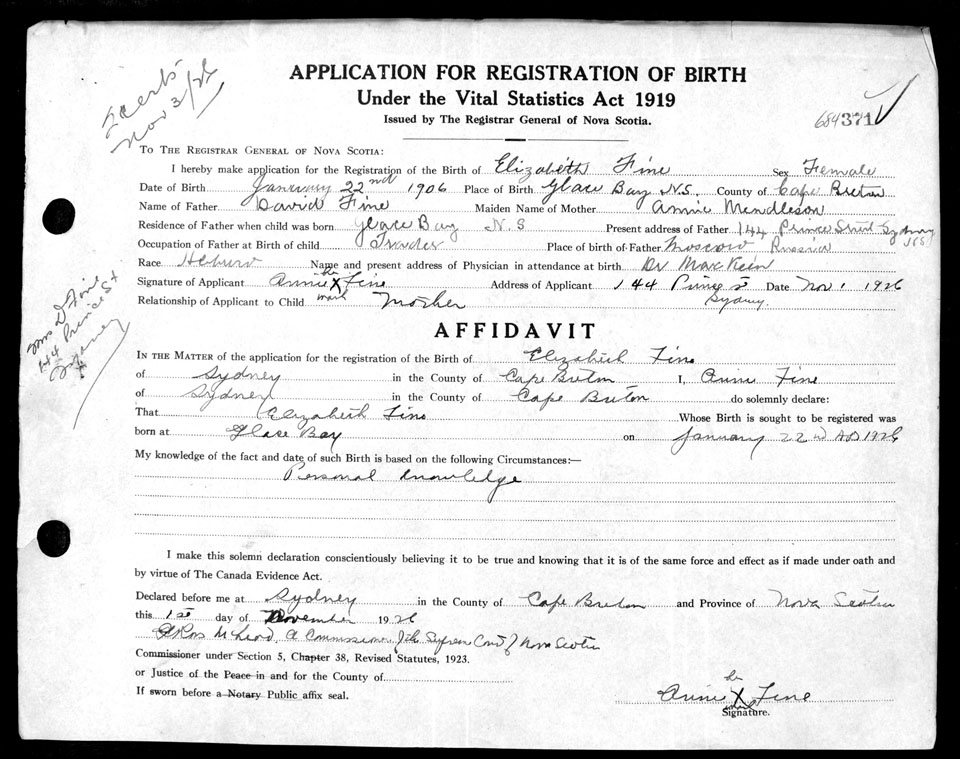 2 certs
Nov 3/26
APPLICATION FOR REGISTRATION OF BIRTH
Under the Vital Statistics Act 1919
Issued by The Registrar General of Nova Scotia.
684371
TO THE REGISTRAR GENERAL OF NOVA SCOTIA:
I hereby make application for the Registration of the Birth of Elizabeth Fine Sex Female
Date of Birth January 22nd 1906 Place of Birth Glace Bay N.S. County of Cape Breton
Name of Father David Fine Maiden Name of Mother Annie Mendleson
Residence of Father when child was born Glace Bay N.S Present address of Father 144 Prince Street Sydney NS
Occupation of Father at Birth of child Trader Place of birth of Father Moscow Russia
Race Hebrew Name and present address of Physician in attendance at birth Dr MacKeen
Signature of Applicant Annie her X mark Fine Address of Applicant 144 Prince St Sydney. Date Nov 1 1926
Relationship of Applicant to Child Mother
Mrs D Fine
144 Prince St
Sydney
AFFIDAVIT
IN THE MATTER of the application for the registration of the Birth of Elizabeth Fine
of Sydney in the County of Cape Breton I, Annie Fine
of Sydney in the County of Cape Breton do solemnly declare:
That Elizabeth Fine Whose Birth is sought to be registered was
born at Glace Bay on January 22nd AD 1926
My knowledge of the fact and date of such Birth is based on the following Circumstances:—
Personal knowledge
I make this solemn declaration conscientiously believing it to be true and knowing that it is of the same force and effect as if made under oath and
by virtue of The Canada Evidence Act.
Declared before me at Sydney in the County of Cape Breton and Province of Nova Scotia
this 1st day of November 1926
Ross McLeod, A Commissioner of the Supreme Court of Nova Scotia
Commissioner under Section 5, Chapter 38, Revised Statutes, 1923.
or Justice of the Peace in and for the County of
If sworn before a Notary Public affix seal.
Annie her X mark Fine
Signature.